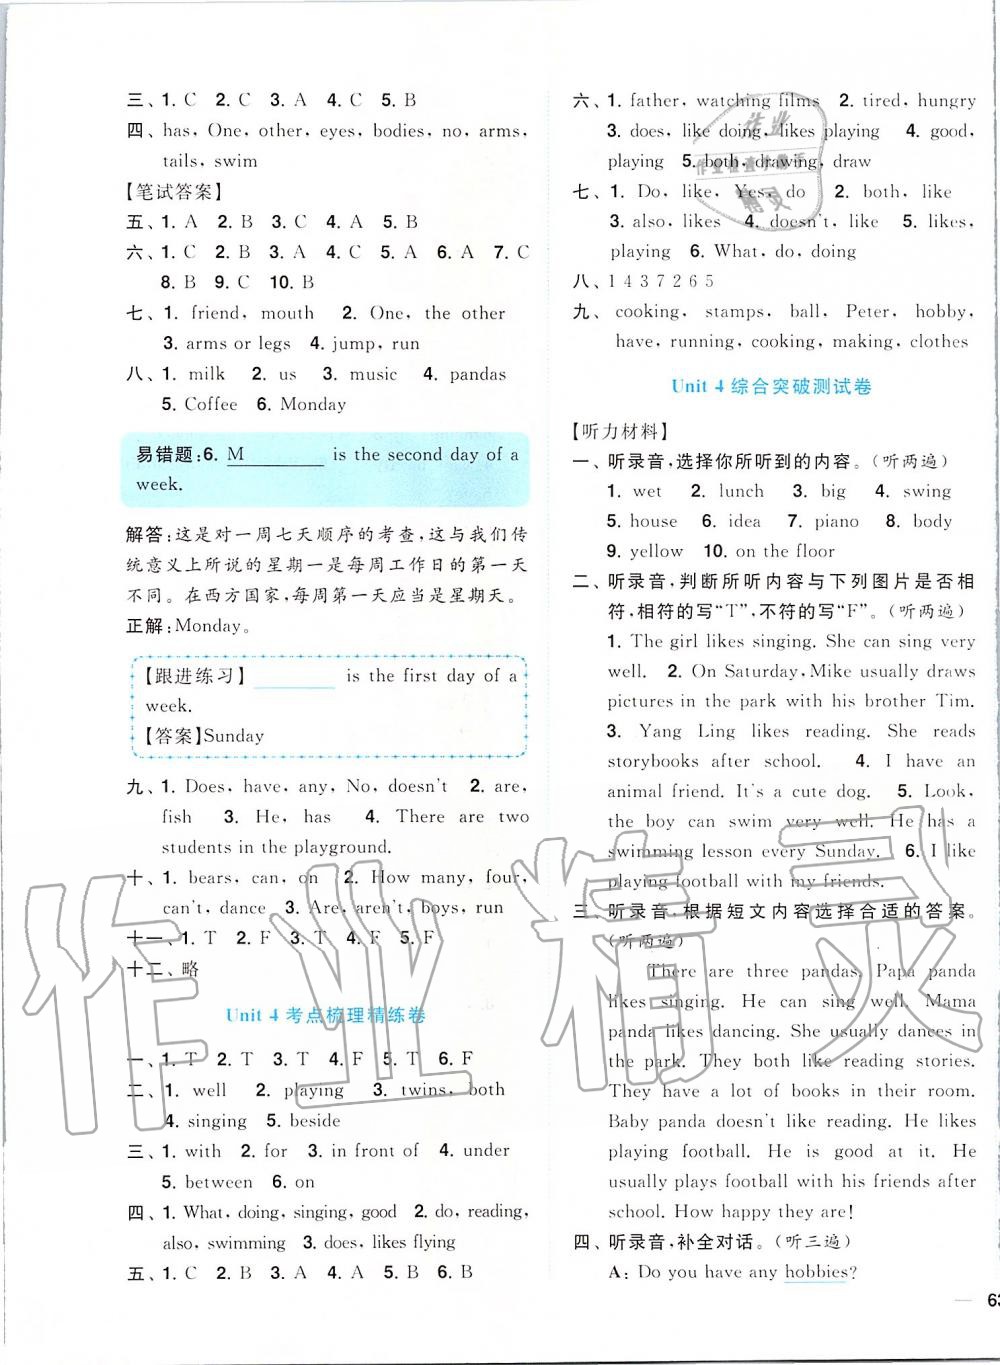 三、1. C  2. C  3. A  4. C  5. B
四、has, One, other, eyes, bodies, no, arms,
tails, swim
【笔试答案】
五、1. A  2. B  3. A  4. B  5. B
六、1. C  2. B  3. A  4. C  5. A  6. A  7. C
8. B  9. C  10. B
七、1. friend, mouth  2. One, the other
3. arms or legs  4. jump, run
八、1. milk  2. us  3. music  4. pandas
5. Coffee  6. Monday
易错题:6. M________ is the second day of a
week.
解答:这是对一周七天顺序的考查,这与我们传
统意义上所说的星期一是每周工作日的第一天
不同。在西方国家,每周第一天应当是星期天。
正解:Monday。
【跟进练习】________ is the first day of a
week.
【答案】Sunday
九、1. Does, have, any, No, doesn't  2. are,
fish  3. He, has  4. There are two
students in the playground.
十、1. bears, can, on  2. How many, four,
can't, dance  3. Are, aren't, boys, run
十一、1. T  2. F  3. T  4. F  5. F
十二、略
Unit 4 考点梳理精练卷
一、1. T  2. T  3. T  4. F  5. T  6. F
二、1. well  2. playing  3. twins, both
4. singing  5. beside
三、1. with  2. for  3. in front of  4. under
5. between  6. on
四、1. What, doing, singing, good  2. do, reading,
also, swimming  3. does, likes flying
五、1. C  2. B  3. A  4. B  5. B  6. B
六、1. father, watching films  2. tired, hungry
3. does, like doing, likes playing  4. good,
playing  5. both, drawing, draw
七、1. Do, like, Yes, do  2. both, like
3. also, likes  4. doesn't, like  5. likes,
playing  6. What, do, doing
八、1 4 3 7 2 6 5
九、cooking, stamps, ball, Peter, hobby,
have, running, cooking, making, clothes
Unit 4 综合突破测试卷
【听力材料】
一、听录音,选择你所听到的内容。(听两遍)
1. wet  2. lunch  3. big  4. swing
5. house  6. idea  7. piano  8. body
9. yellow  10. on the floor
二、听录音,判断所听内容与下列图片是否相
符,相符的写“T”,不符的写“F”。(听两遍)
1. The girl likes singing. She can sing very
well.  2. On Saturday, Mike usually draws
pictures in the park with his brother Tim.
3. Yang Ling likes reading. She reads
storybooks after school.  4. I have an
animal friend. It's a cute dog.  5. Look,
the boy can swim very well. He has a
swimming lesson every Sunday.  6. I like
playing football with my friends.
三、听录音,根据短文内容选择合适的答案。
(听两遍)
There are three pandas. Papa panda
likes singing. He can sing well. Mama
panda likes dancing. She usually dances in
the park. They both like reading stories.
They have a lot of books in their room.
Baby panda doesn't like reading. He likes
playing football. He is good at it. He
usually plays football with his friends after
school. How happy they are!
四、听录音,补全对话。(听三遍)
A: Do you have any hobbies?
— 63
作业精灵
作业
作业检查小帮手
精灵